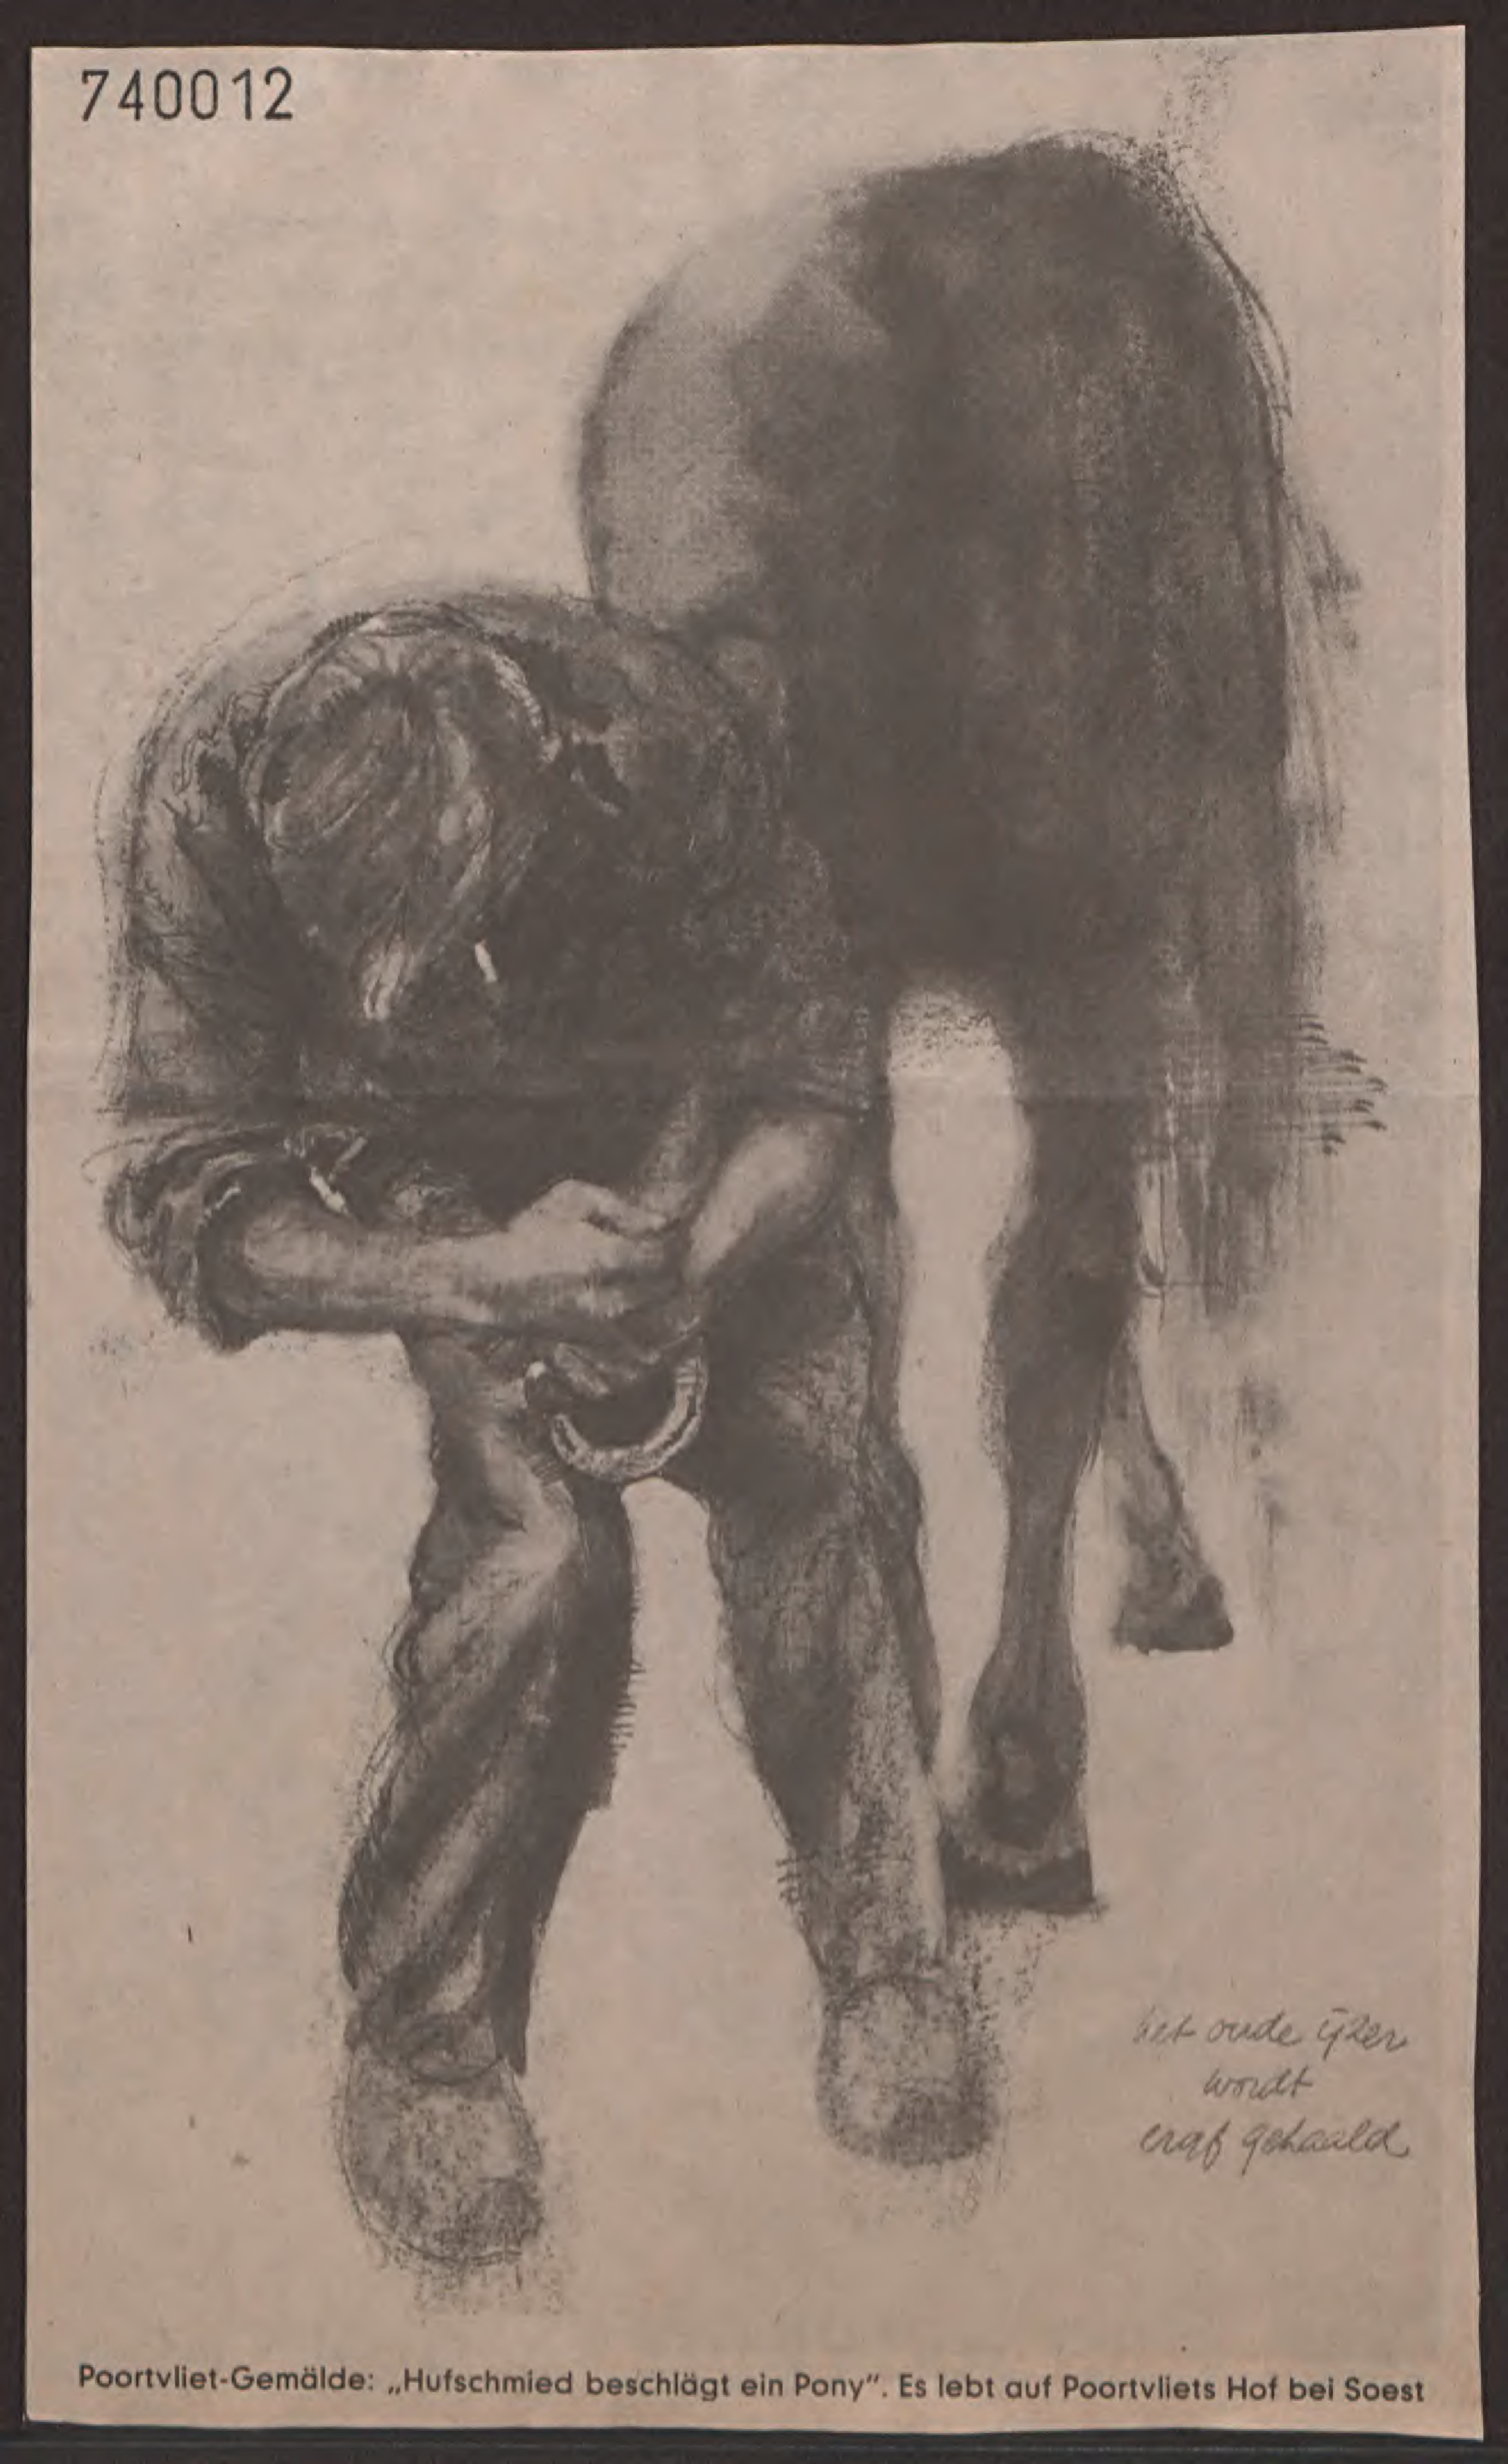 740012
het oude ijzer
wordt
eraf gehaald
Poortvliet-Gemälde: „Hufschmied beschlägt ein Pony”. Es lebt auf Poortvliets Hof bei Soest